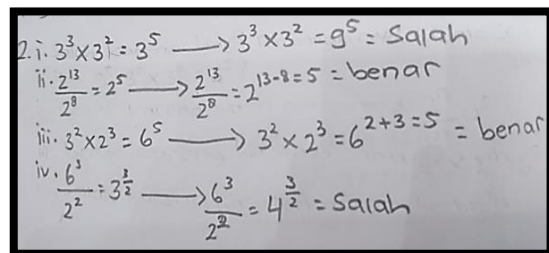 2. i. 3³ × 3² = 3⁵ ⟶ 3³ × 3² = 9⁵ = Salah
ii. 2¹³/2⁸ = 2⁵ ⟶ 2¹³/2⁸ = 2¹³⁻⁸⁼⁵ = benar
iii. 3² × 2³ = 6⁵ ⟶ 3² × 2³ = 6²⁺³⁼⁵ = benar
iv. 6³/2² = 3^(3/2) ⟶ 6³/2² = 4^(3/2) = Salah